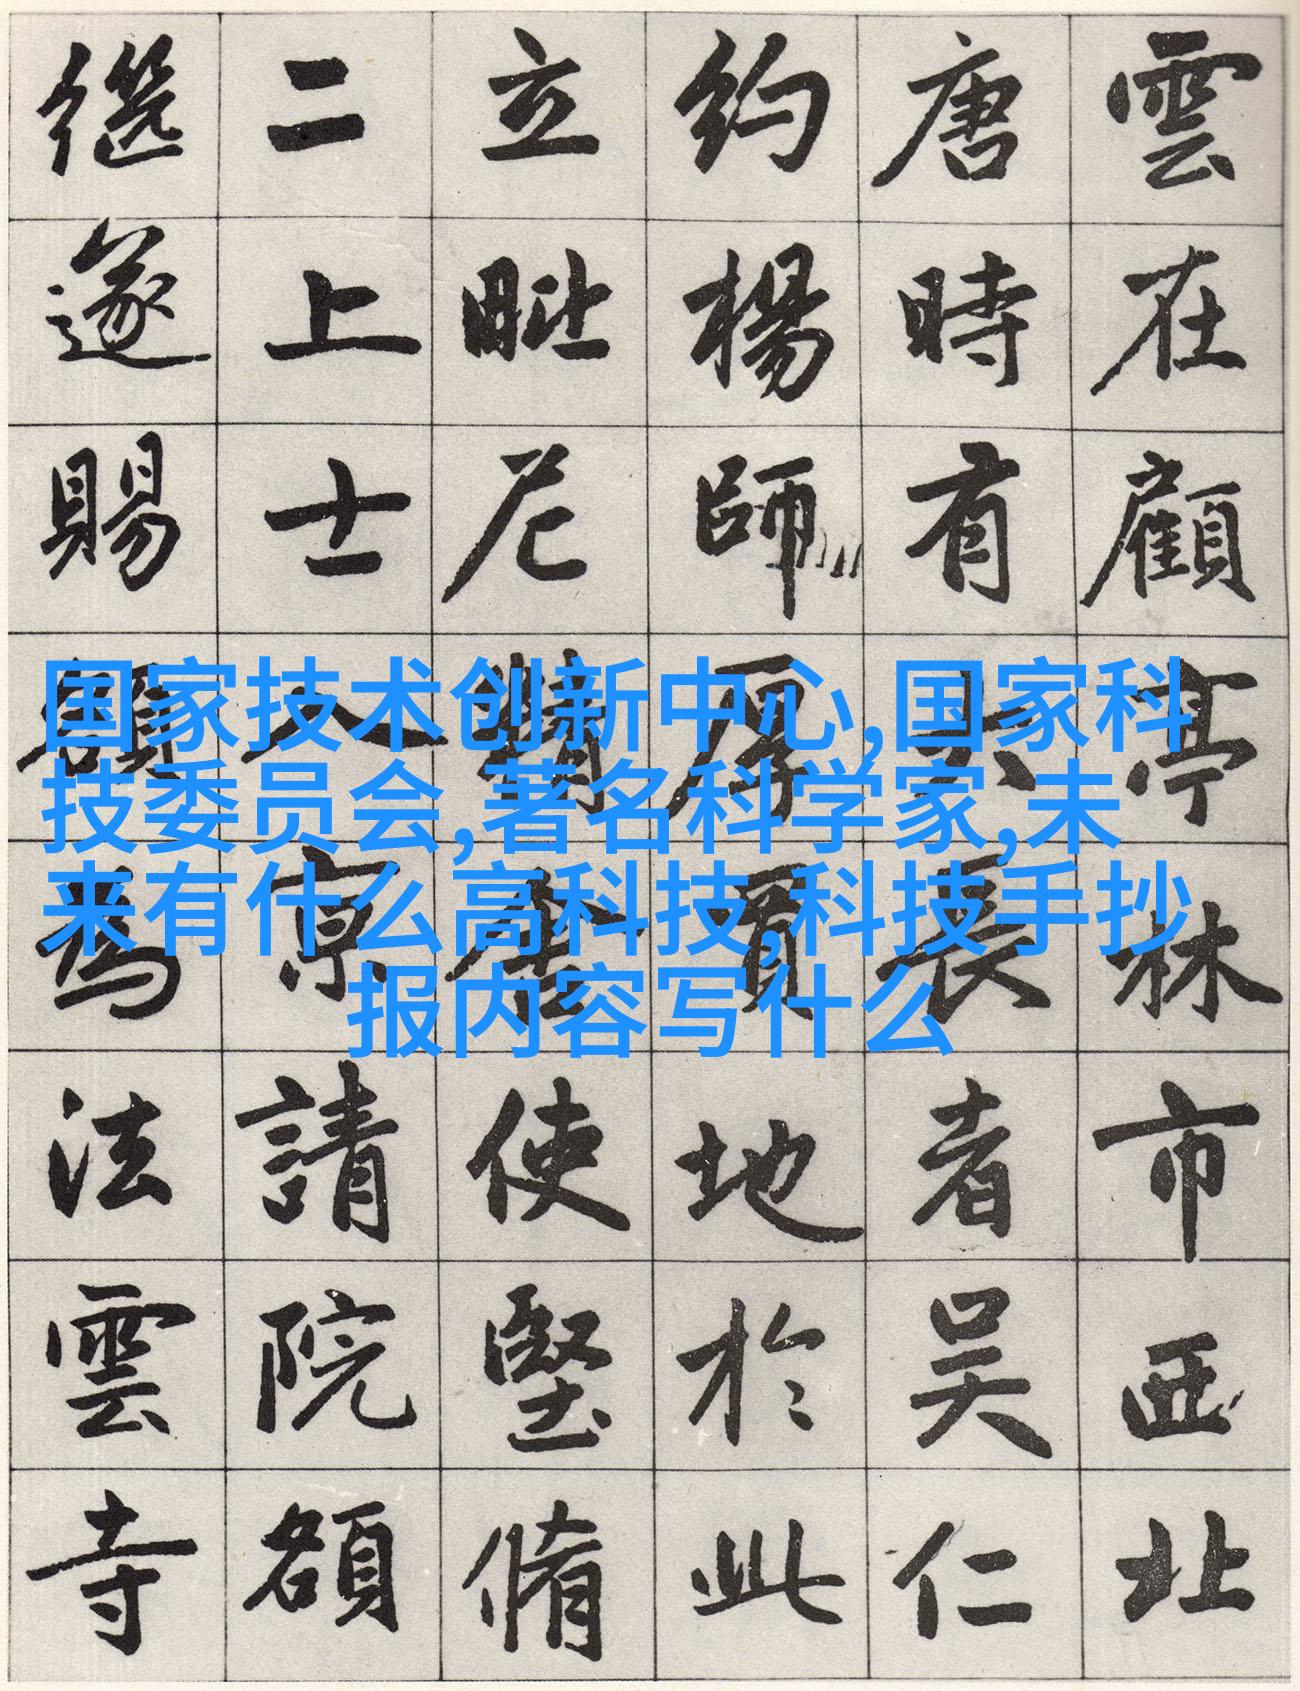 雲在顧亭林市西北
唐時有大長者吴仁
約楊師厚買地於此
立毗尼精舍使堅脩
二上士入京請院額
繼遂賜額為法雲寺
国家技术创新中心,国家科
技委员会,著名科学家,未
来有什么高科技,科技手抄
报内容写什么